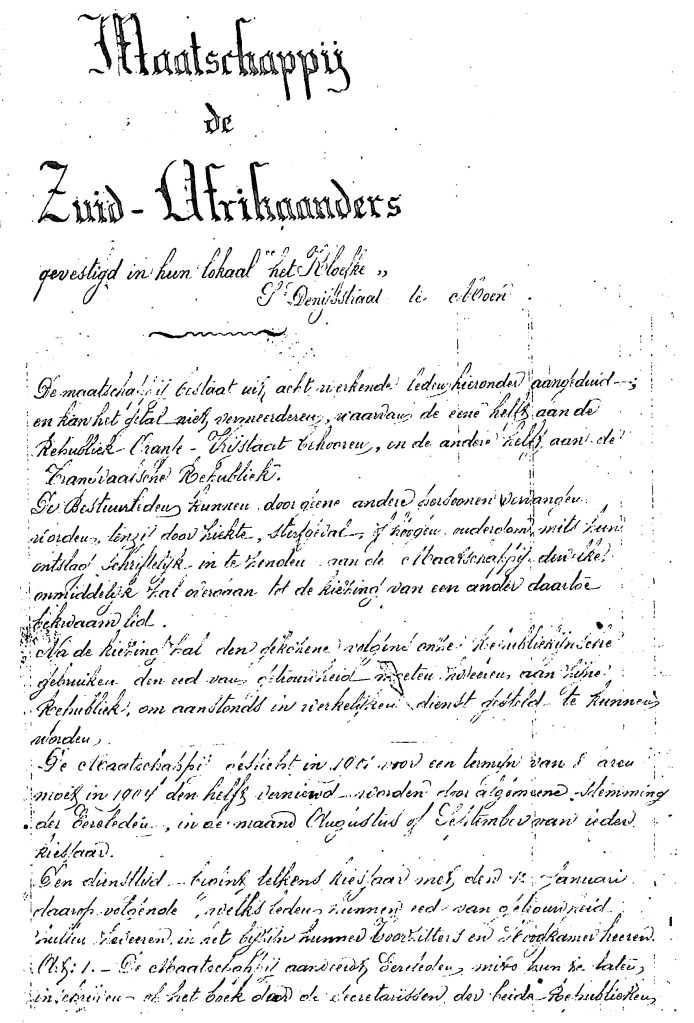 Maatschappij
de
Zuid-Afrikaanders
gevestigd in hun lokaal "het Kloefke"
St Denijsstraat te Moen.
De maatschappij bestaat uit acht werkende leden hieronder aangeduid
en kan het getal niet vermeerderen, waarvan de eene helft aan de
Republiek Oranje-Vrijstaat behooren, en de andere helft aan de
Transvaalsche Republiek.
De Bestuurleden kunnen door geene andere persoonen vervangen
worden, tenzij door ziekte, sterfgeval, of hoogen ouderdom, mits hun
ontslag schriftelijk in te zenden aan de Maatschappij, dewelke
onmiddelijk zal overgaan tot de kiezing van een ander daartoe
bekwaam lid.
Na de kiezing zal den gekozene volgens onze Republiekijnsche
gebruiken den eed van getrouwheid moeten zweeren aan zijne
Republiek, om aanstonds in werkelijken dienst gesteld te kunnen
worden,
De Maatschappij gesticht in voor een termijn van 8 aren
moet in 1904 den helft vernieuwd worden door algemeene Stemming
der Eereleden, in de maand Augustus of September van ieder
kiesjaar.
Den diensttijd begint telkens kiesjaar met den Januari
daarop volgende, welks leden hunnen eed van getrouwheid
zullen zweeren in het bijzijn hunner Voorzitters en Hoodkamerheeren.
Art: 1. - De Maatschappij aanveerdt Eereleden, mits hun te laten
inschrijven of het boek door de Secretarissen der beide Republieken,